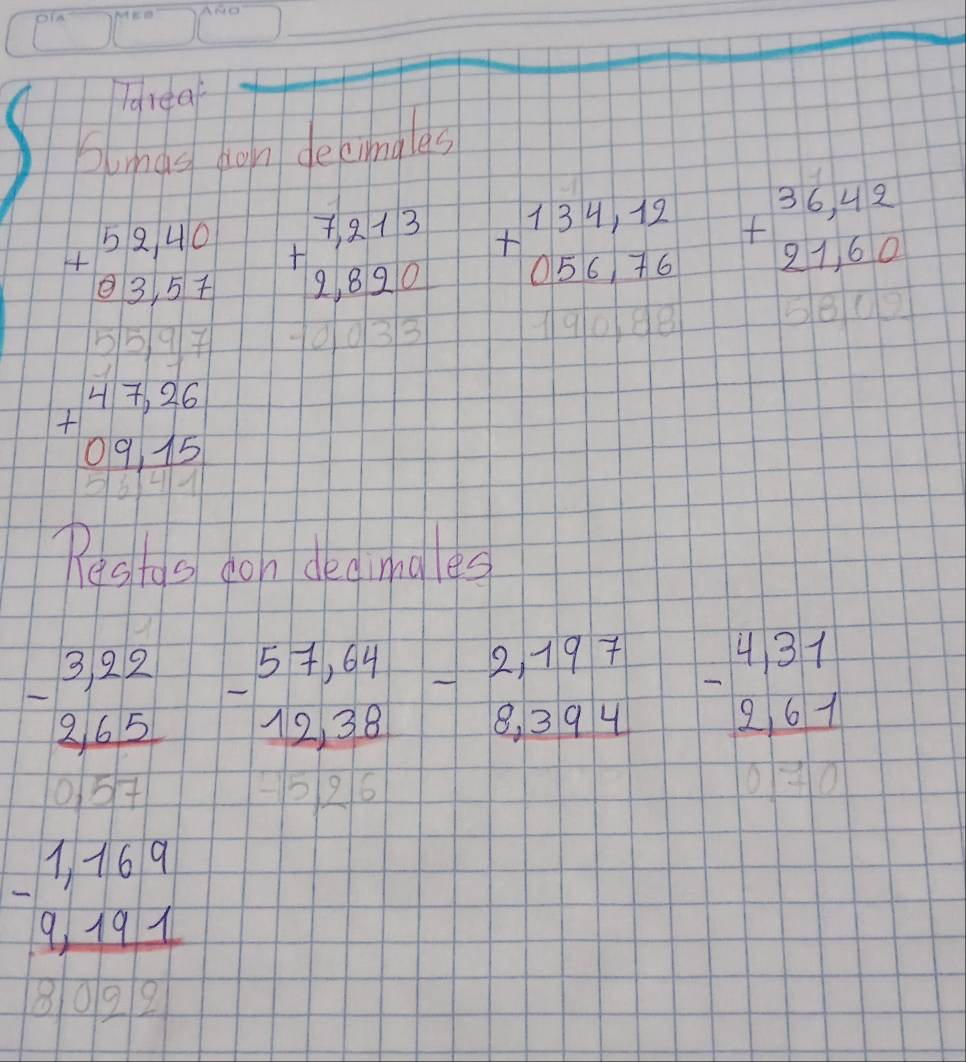 DÍA MES AÑO
Tarea:
Sumas con decimales
1 1 1
52,40 7,213 134,12 36,42
+ + + +
03,57 2,820 056,76 21,60
55,97 10,033 190,88 58,02
1 1
47,26
+
09,15
53,41
Restas con decimales
1
3,22 57,64 2,197 4,31
- - - -
2,65 12,38 8,394 2,61
0,57 45,26 0,70
1,169
-
9,191
8,022